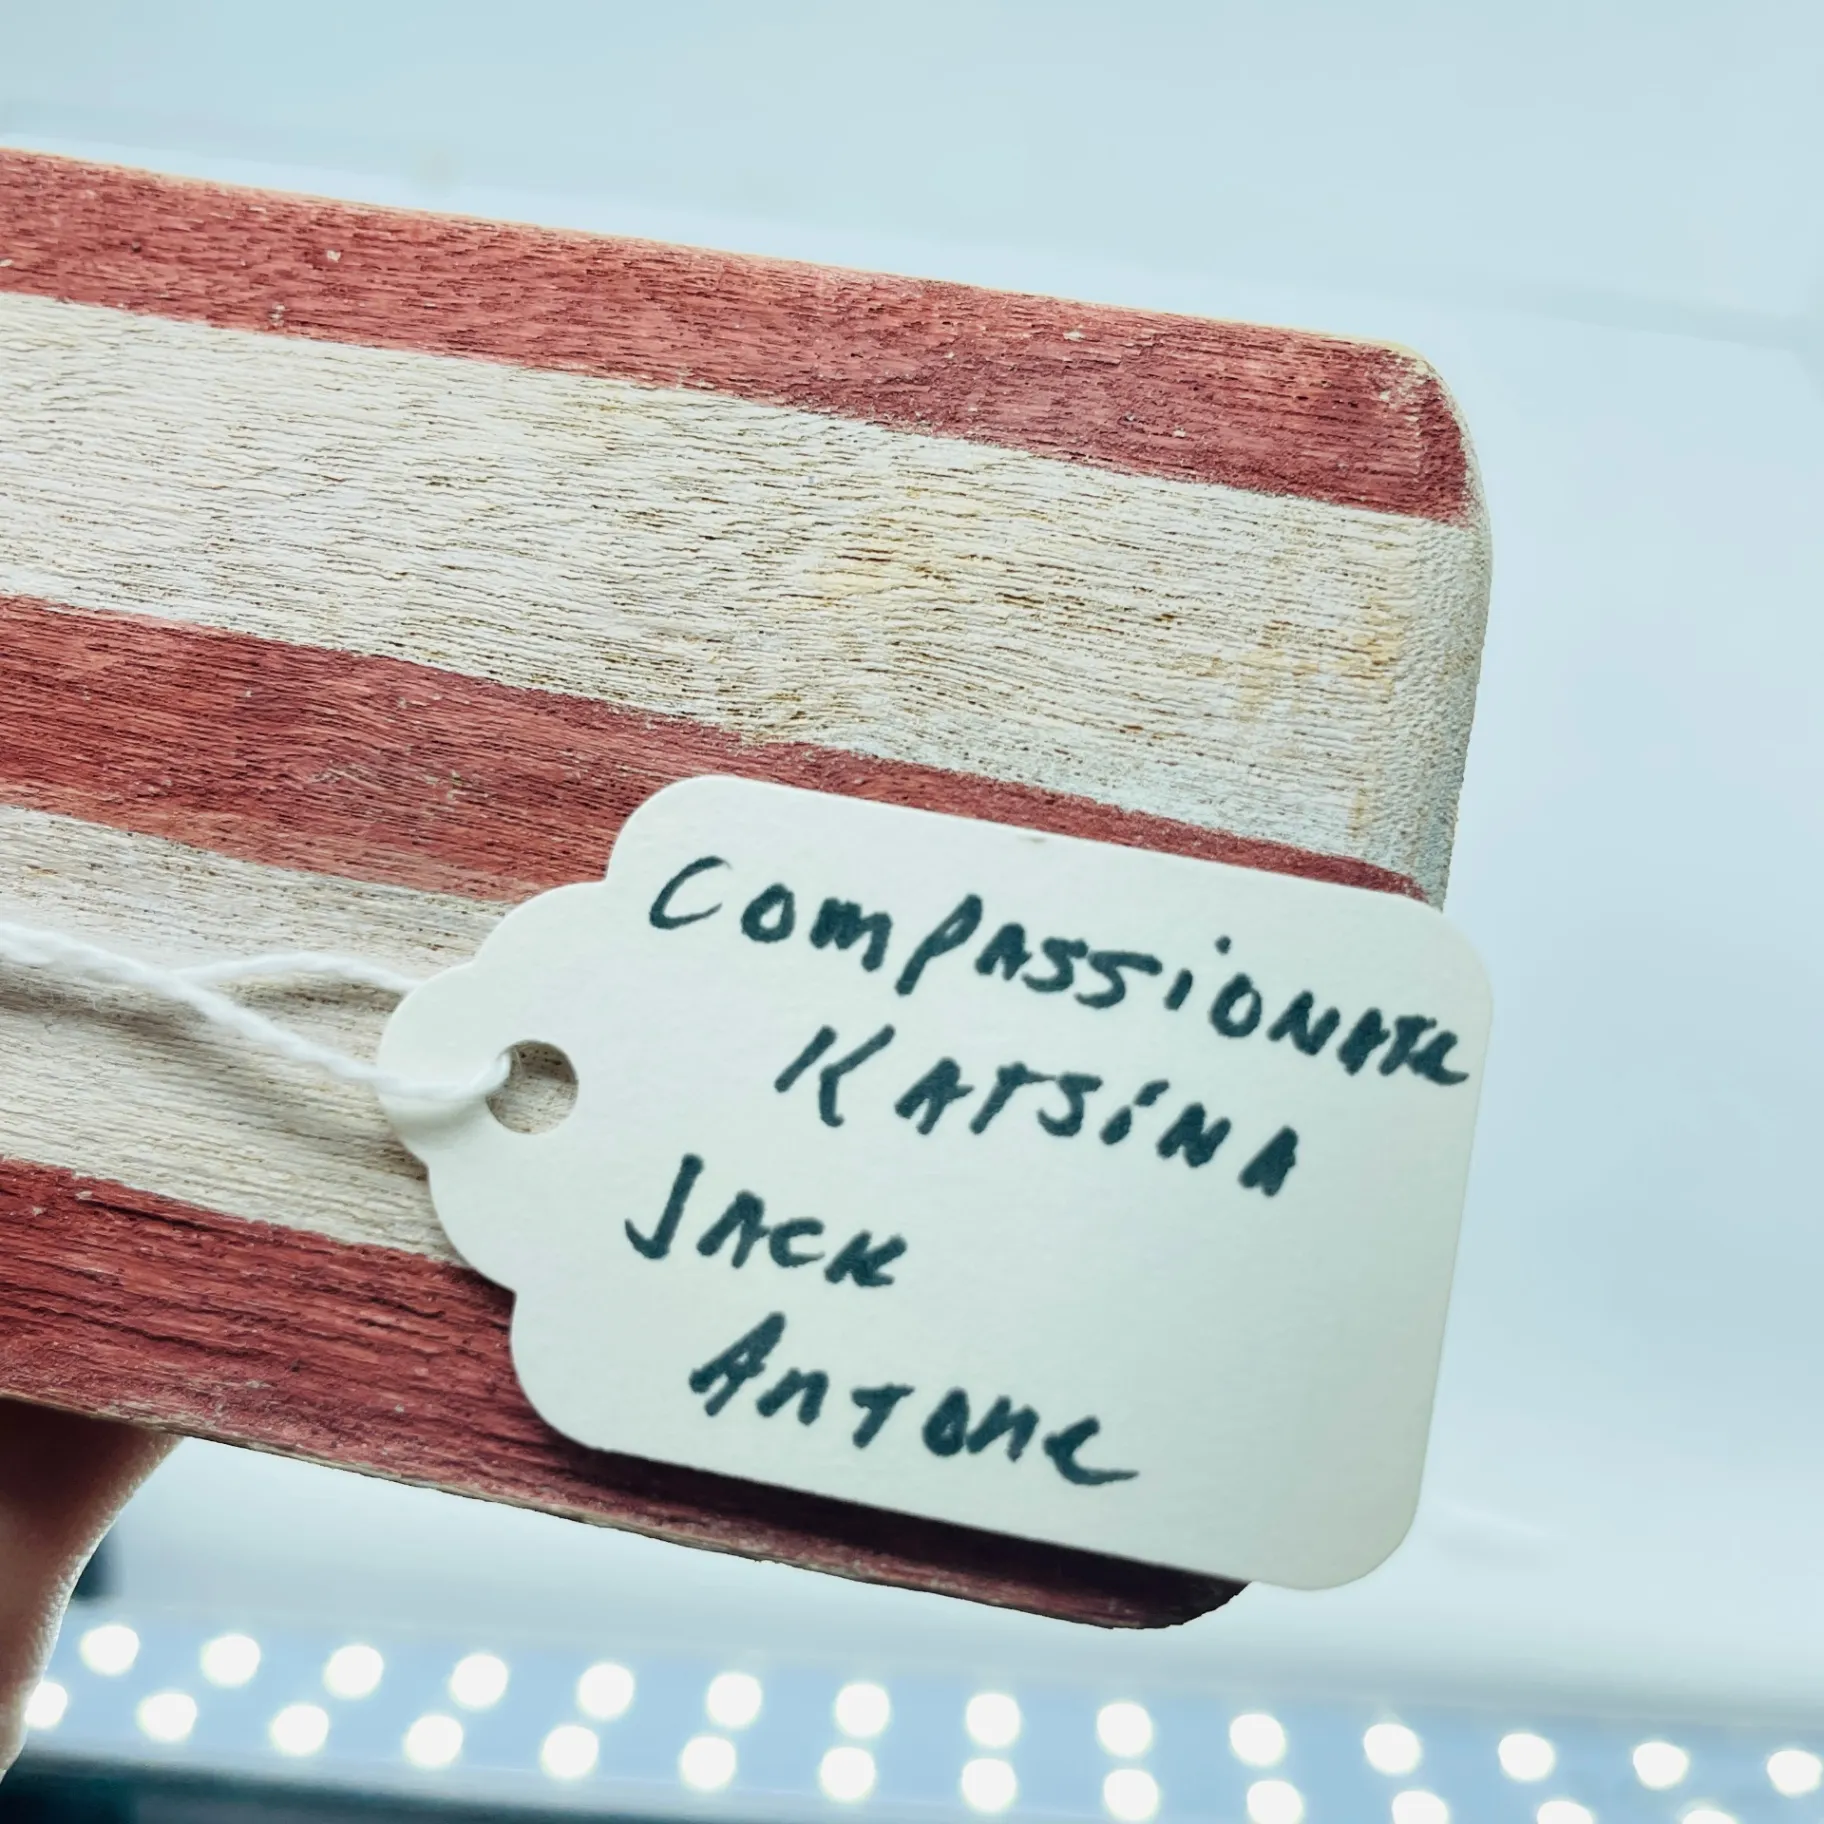 Compassionate
Katsina
Jack
Antone